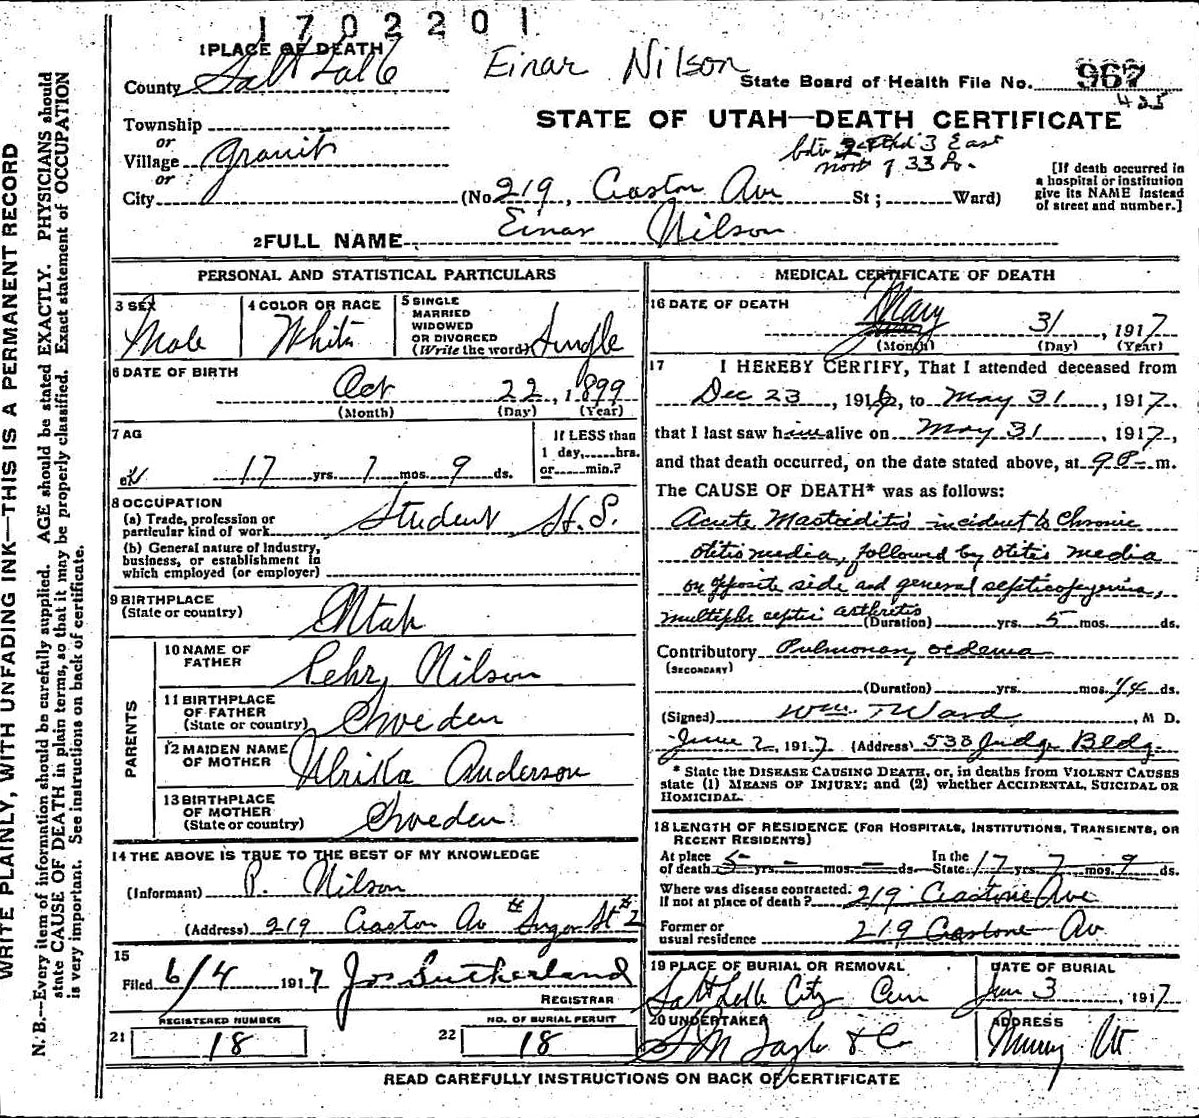 1702201
1 PLACE OF DEATH
Einar Nilson
County Salt Lake
State Board of Health File No. 967
425
STATE OF UTAH—DEATH CERTIFICATE
Township
or
Village Granite
or
City
(No 219, Ave St; Ward)
3 East
33 So.
[If death occurred in
a hospital or institution
give its NAME instead
of street and number.]
2 FULL NAME Einar Nilson
PERSONAL AND STATISTICAL PARTICULARS
3 SEX Male
4 COLOR OR RACE White
5 SINGLE
MARRIED
WIDOWED
OR DIVORCED
(Write the word) Single
6 DATE OF BIRTH
Oct 22, 1899
(Month) (Day) (Year)
7 AG
17 yrs. 7 mos. 9 ds.
If LESS than
1 day, hrs.
or min.?
8 OCCUPATION
(a) Trade, profession or
particular kind of work Student H.S.
(b) General nature of industry,
business, or establishment in
which employed (or employer)
9 BIRTHPLACE
(State or country) Utah
PARENTS
10 NAME OF
FATHER Pehr Nilson
11 BIRTHPLACE
OF FATHER
(State or country) Sweden
12 MAIDEN NAME
OF MOTHER Ulrikka Anderson
13 BIRTHPLACE
OF MOTHER
(State or country) Sweden
14 THE ABOVE IS TRUE TO THE BEST OF MY KNOWLEDGE
(Informant) P. Nilson
(Address) 219 Av
15
Filed 6/4 1917 Jos Sutherland
REGISTRAR
21 REGISTERED NUMBER
18
22 NO. OF BURIAL PERMIT
18
MEDICAL CERTIFICATE OF DEATH
16 DATE OF DEATH
May 31, 1917
(Month) (Day) (Year)
17 I HEREBY CERTIFY, That I attended deceased from
Dec 23, 1916, to May 31, 1917,
that I last saw him alive on May 31, 1917,
and that death occurred, on the date stated above, at 9 P m.
The CAUSE OF DEATH* was as follows:
Acute Mastoiditis incident to Chronic
otitis media, followed by otitis media
on opposite side and general
multiple septic arthritis
(Duration) yrs. 5 mos. ds.
Contributory Pulmonary oedema
(SECONDARY)
(Duration) yrs. mos. 14 ds.
(Signed) Wm. T Ward, M D.
June 2, 1917 (Address) 538 Judge Bldg.
* State the DISEASE CAUSING DEATH, or, in deaths from VIOLENT CAUSES
state (1) MEANS OF INJURY; and (2) whether ACCIDENTAL, SUICIDAL OR
HOMICIDAL.
18 LENGTH OF RESIDENCE (FOR HOSPITALS, INSTITUTIONS, TRANSIENTS, OR
RECENT RESIDENTS)
At place of death 5 yrs. - mos. - ds. In the State 17 yrs. 7 mos. 9 ds.
Where was disease contracted.
If not at place of death? 219 Ave
Former or
usual residence 219 Av
19 PLACE OF BURIAL OR REMOVAL
Salt Lake City Cem
DATE OF BURIAL
Jun 3, 1917
20 UNDERTAKER
ADDRESS
Murray Ut
READ CAREFULLY INSTRUCTIONS ON BACK OF CERTIFICATE
WRITE PLAINLY, WITH UNFADING INK—THIS IS A PERMANENT RECORD
N. B.—Every item of information should be carefully supplied. AGE should be stated EXACTLY. PHYSICIANS should
state CAUSE OF DEATH in plain terms, so that it may be properly classified. Exact statement of OCCUPATION
is very important. See instructions on back of certificate.